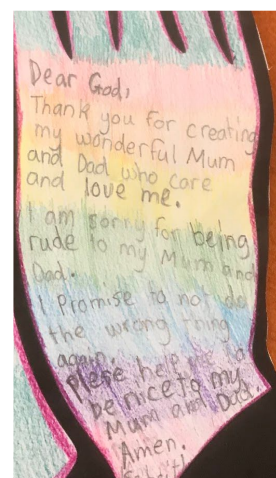 Dear God,
Thank you for creating
my wonderful Mum
and Dad who care
and love me.
I am sorry for being
rude to my Mum and
Dad.
I Promise to not do
the wrong thing
again.
Plese help me to
be nice to my
Mum and Dad.
Amen.